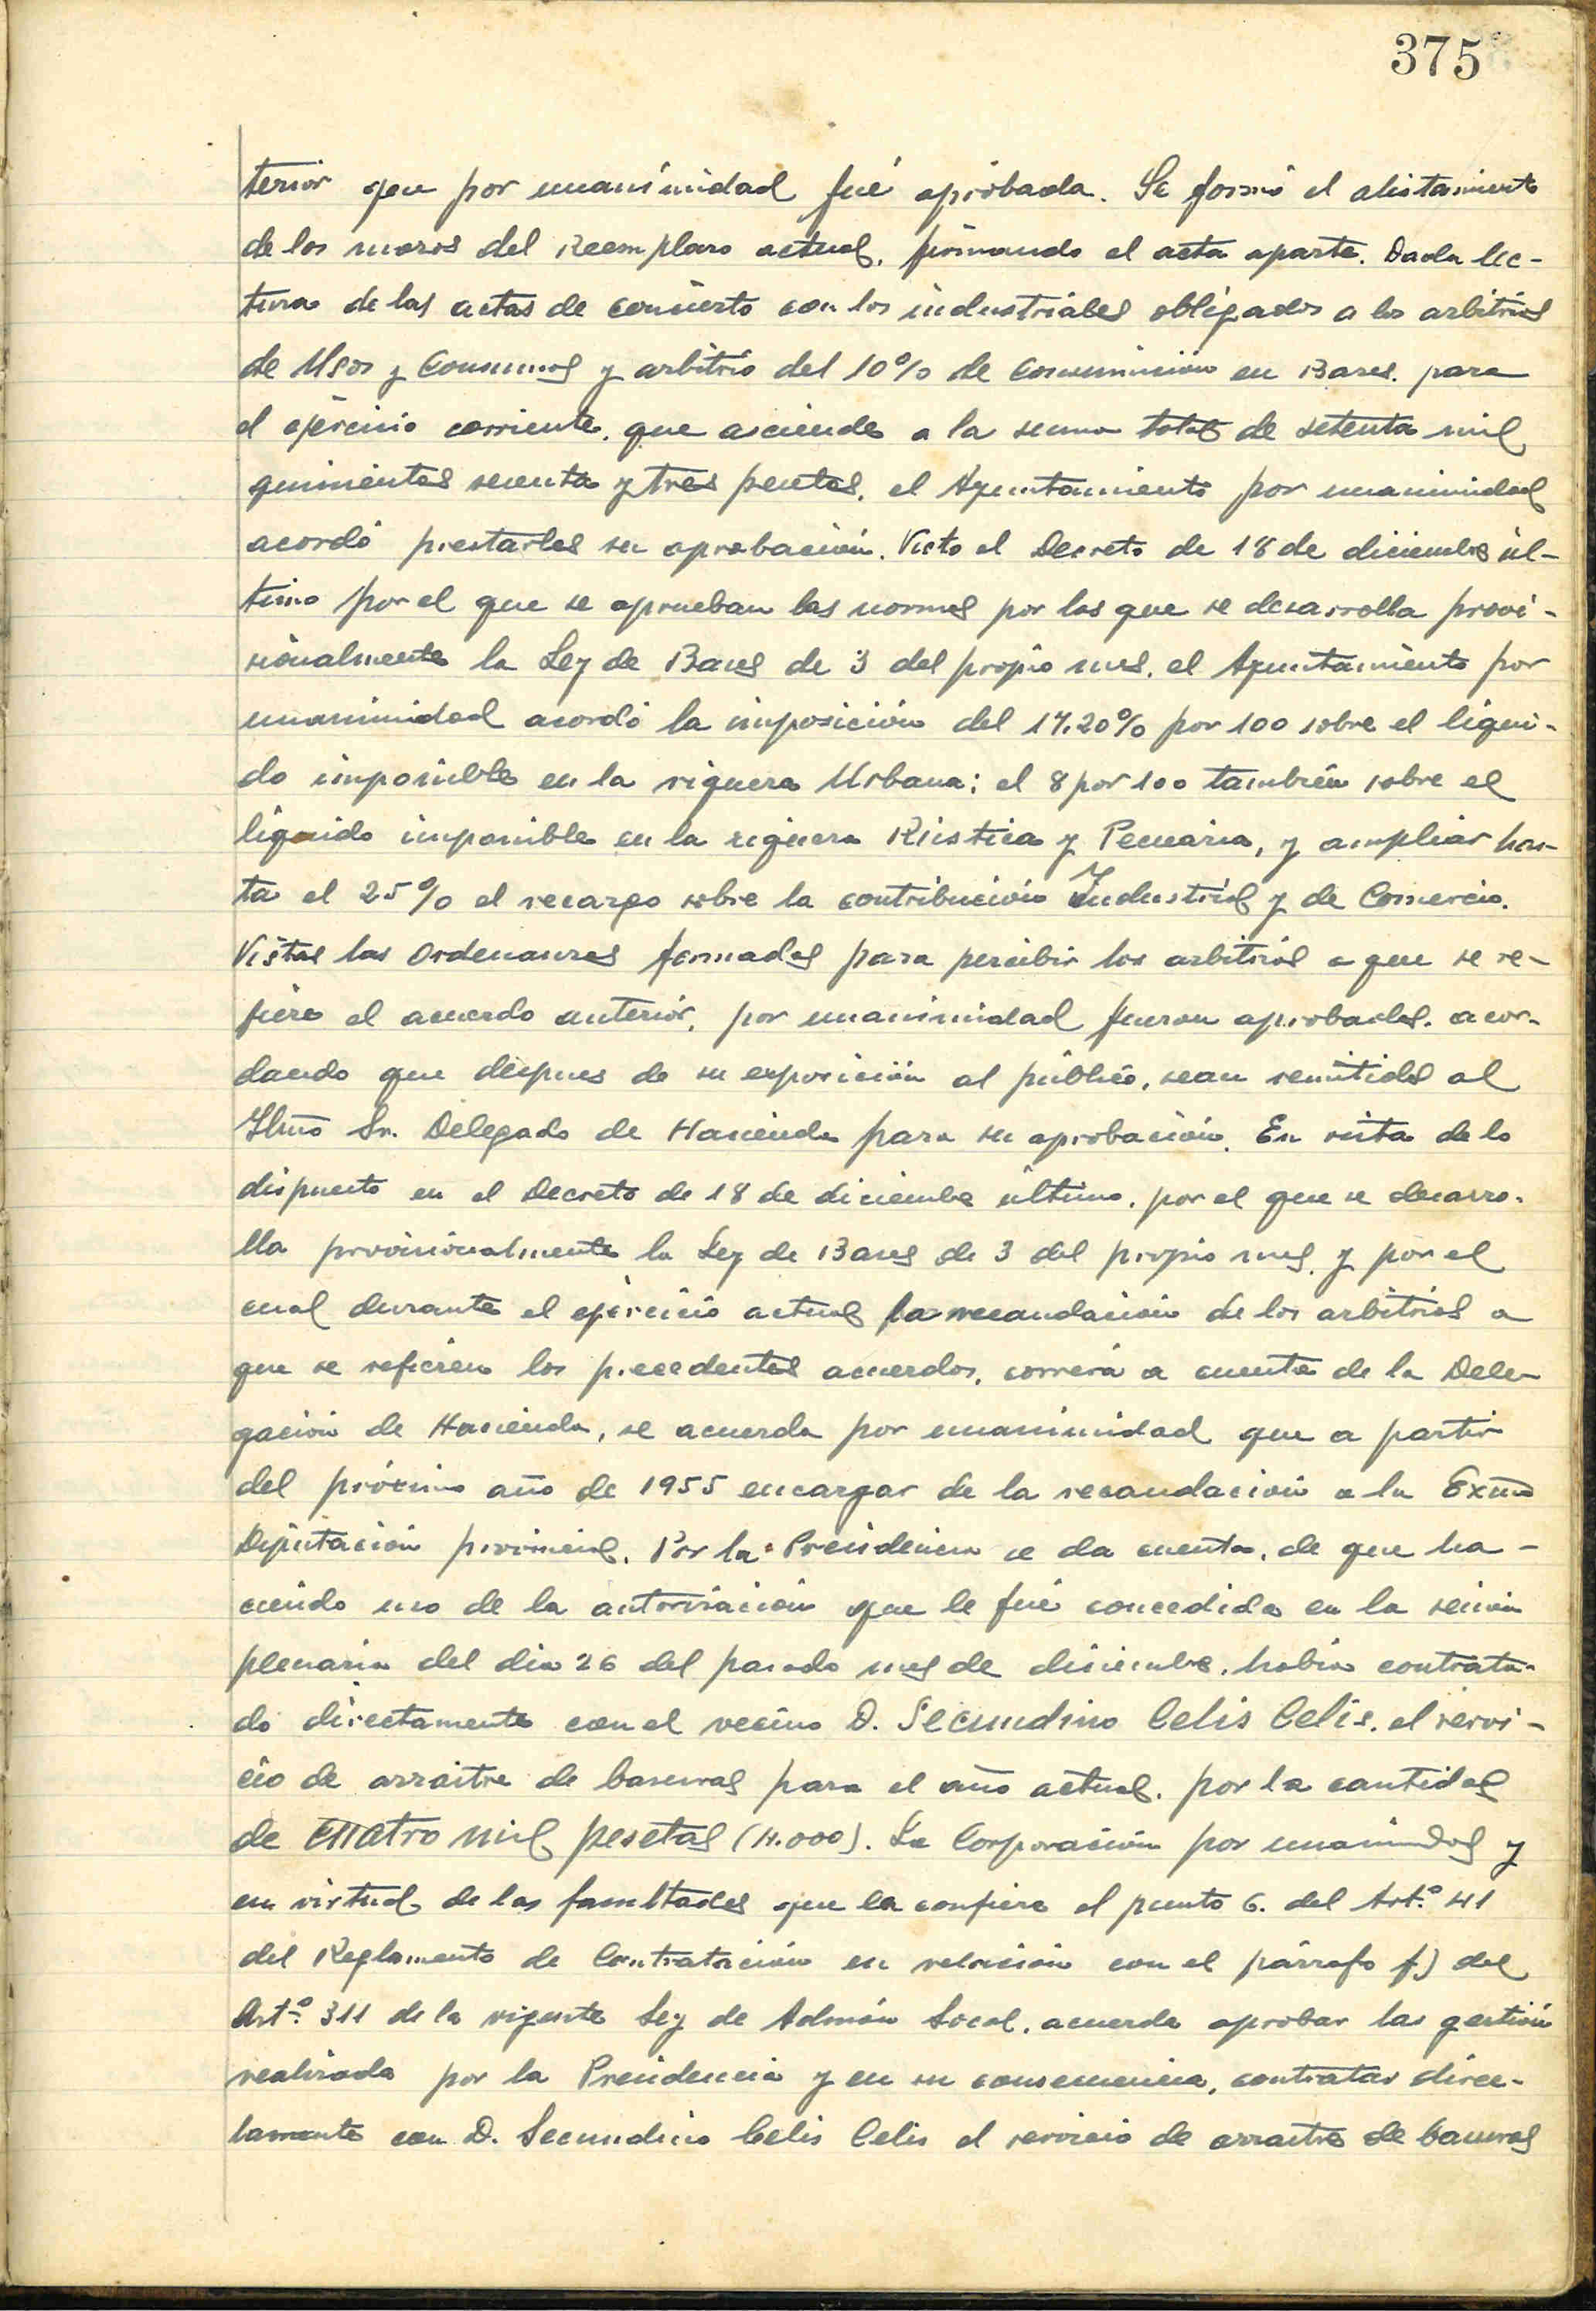 375
terior que por unanimidad fué aprobada. Se formó el alistamiento
de los mozos del Reemplazo actual, firmando el acta aparte. Dada lec-
tura de las actas de concierto con los industriales obligados a los arbitrios
de Usos y Consumos y arbitrio del 10% de consumición en Bares para
el ejercicio corriente, que asciende a la suma total de setenta mil
quinientas sesenta y tres pesetas, el Ayuntamiento por unanimidad
acordó prestarles su aprobación. Visto el Decreto de 18 de diciembre úl-
timo por el que se aprueban las normas por las que se desarrolla provi-
sionalmente la Ley de Bases de 3 del propio mes, el Ayuntamiento por
unanimidad acordó la imposición del 17,20% por 100 sobre el líqui-
do imponible en la riqueza Urbana; el 8 por 100 también sobre el
líquido imponible en la riqueza Rústica y Pecuaria, y ampliar has-
ta el 25% el recargo sobre la contribución Industrial y de Comercio.
Vistas las Ordenanzas formadas para percibir los arbitrios a que se re-
fiere el acuerdo anterior, por unanimidad fueron aprobadas, acor-
dando que despues de su exposición al público, sean remitidas al
Ilmo Sr. Delegado de Hacienda para su aprobación. En vista de lo
dispuesto en el Decreto de 18 de diciembre último, por el que se desarro-
lla provisionalmente la Ley de Bases de 3 del propio mes, y por el
cual durante el ejercicio actual la recaudación de los arbitrios a
que se refieren los precedentes acuerdos, correrá a cuenta de la Dele-
gación de Hacienda, se acuerda por unanimidad que a partir
del próximo año de 1955 encargar de la recaudación a la Exma
Diputación provincial. Por la Presidencia se da cuenta, de que ha-
ciendo uso de la autorización que le fué concedida en la sesión
plenaria del dia 26 del pasado mes de diciembre, habia contrata-
do directamente con el vecino D. Secundino Celis Celis, el servi-
cio de arrastre de basuras para el año actual, por la cantidad
de cuatro mil pesetas (4.000). La Corporación por unanimidad y
en virtud de las facultades que la confiere el punto 6. del Artº. 41
del Reglamento de Contratación en relación con el párrafo f) del
Artº. 311 de la vigente Ley de Admón Local, acuerda aprobar las gestión
realizada por la Presidencia y en su consecuencia, contratar direc-
tamente con D. Secundino Celis Celis el servicio de arrastre de basuras